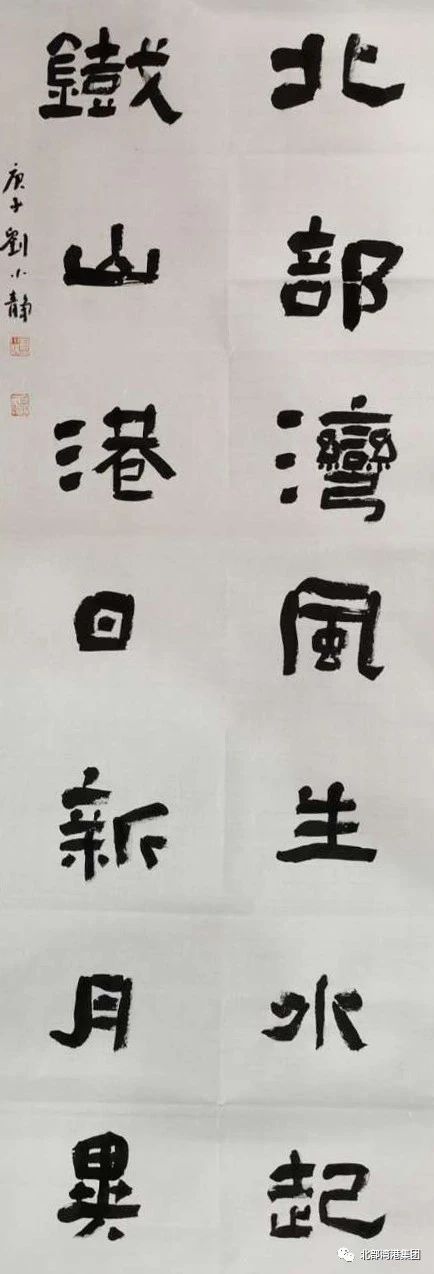 北部灣風生水起
鐵山港日新月異
庚子劉小靜
北部湾港集团